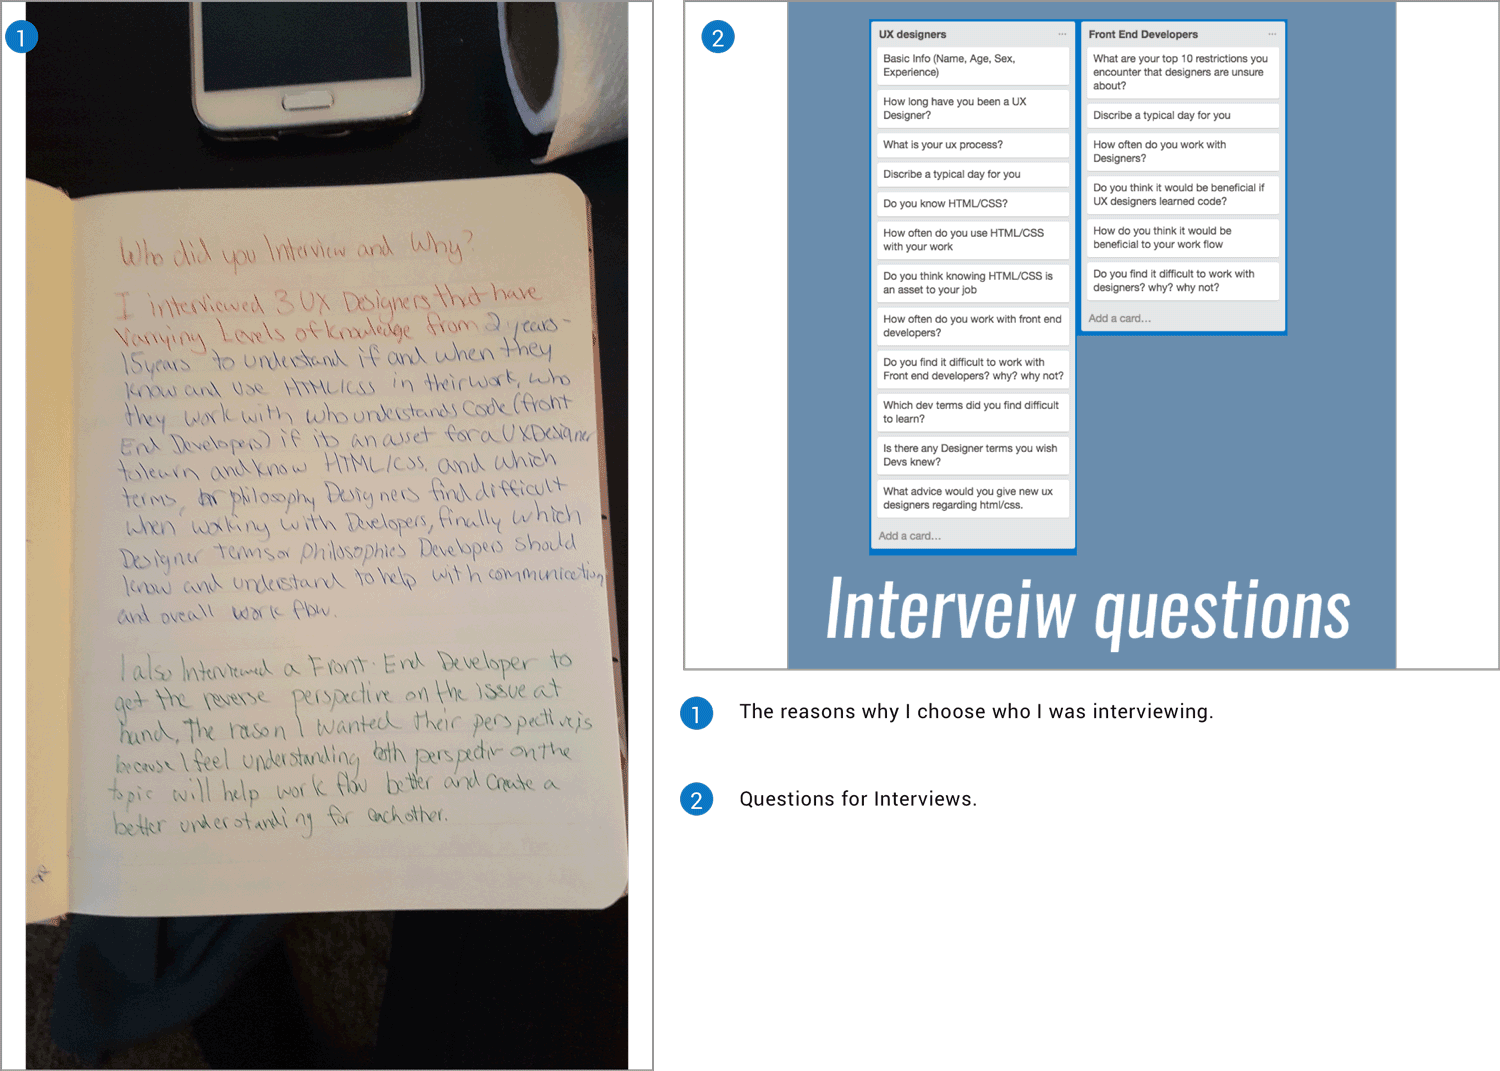 1
Who did you Interview and Why?
I interviewed 3 UX Designers that have
Varrying Levels of knowledge from 2 years-
15years to understand if and when they
know and use HTML/CSS in their work, who
they work with who understands code (front
End Developers) if its an asset for a UX Designer
to learn and know HTML/CSS. and which
terms, or philosophy Designers find difficult
when working with Developers, finally which
Designer terms or philosophies Developers should
know and understand to help with communication
and overall work flow.
I also Interviewed a Front-End Developer to
get the reverse perspective on the issue at
hand. The reason I wanted their perspective is
because I feel understanding both perspectiv on the
topic will help work flow better and create a
better understanding for eachother.
2
UX designers
Basic Info (Name, Age, Sex,
Experience)
How long have you been a UX
Designer?
What is your ux process?
Discribe a typical day for you
Do you know HTML/CSS?
How often do you use HTML/CSS
with your work
Do you think knowing HTML/CSS is
an asset to your job
How often do you work with front end
developers?
Do you find it difficult to work with
Front end developers? why? why not?
Which dev terms did you find difficult
to learn?
Is there any Designer terms you wish
Devs knew?
What advice would you give new ux
designers regarding html/css.
Add a card...
Front End Developers
What are your top 10 restrictions you
encounter that designers are unsure
about?
Discribe a typical day for you
How often do you work with
Designers?
Do you think it would be beneficial if
UX designers learned code?
How do you think it would be
beneficial to your work flow
Do you find it difficult to work with
designers? why? why not?
Add a card...
Interveiw questions
1 The reasons why I choose who I was interviewing.
2 Questions for Interviews.